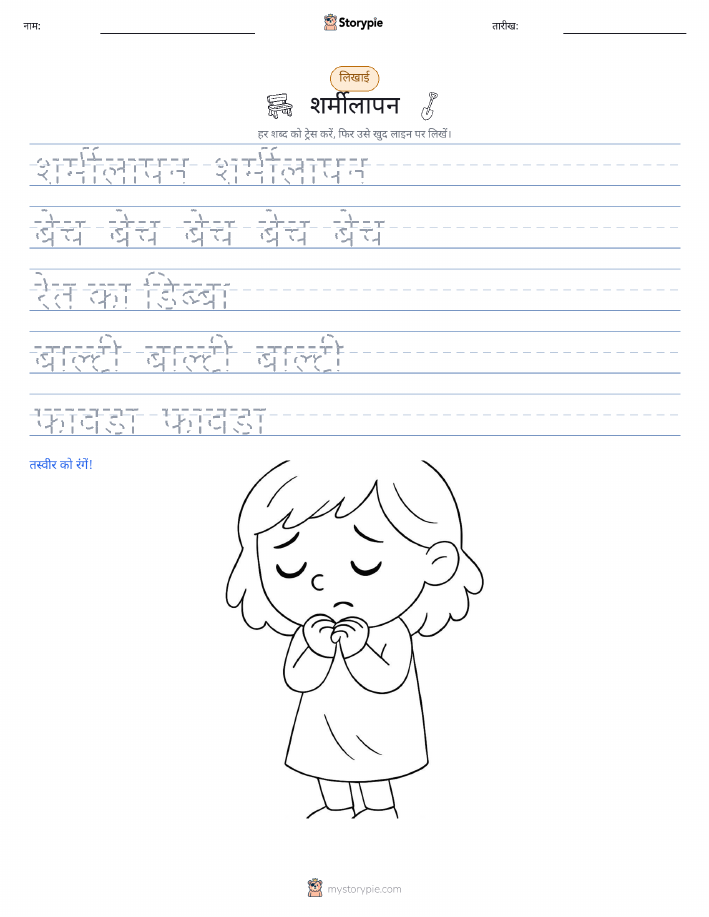 नाम: Storypie तारीख:
लिखाई
शर्मीलापन
हर शब्द को ट्रेस करें, फिर उसे खुद लाइन पर लिखें।
शर्मीलापन शर्मीलापन
बेंच बेंच बेंच बेंच बेंच
रेत का डिब्बा
बाल्टी बाल्टी बाल्टी
फावड़ा फावड़ा
तस्वीर को रंगें!
mystorypie.com